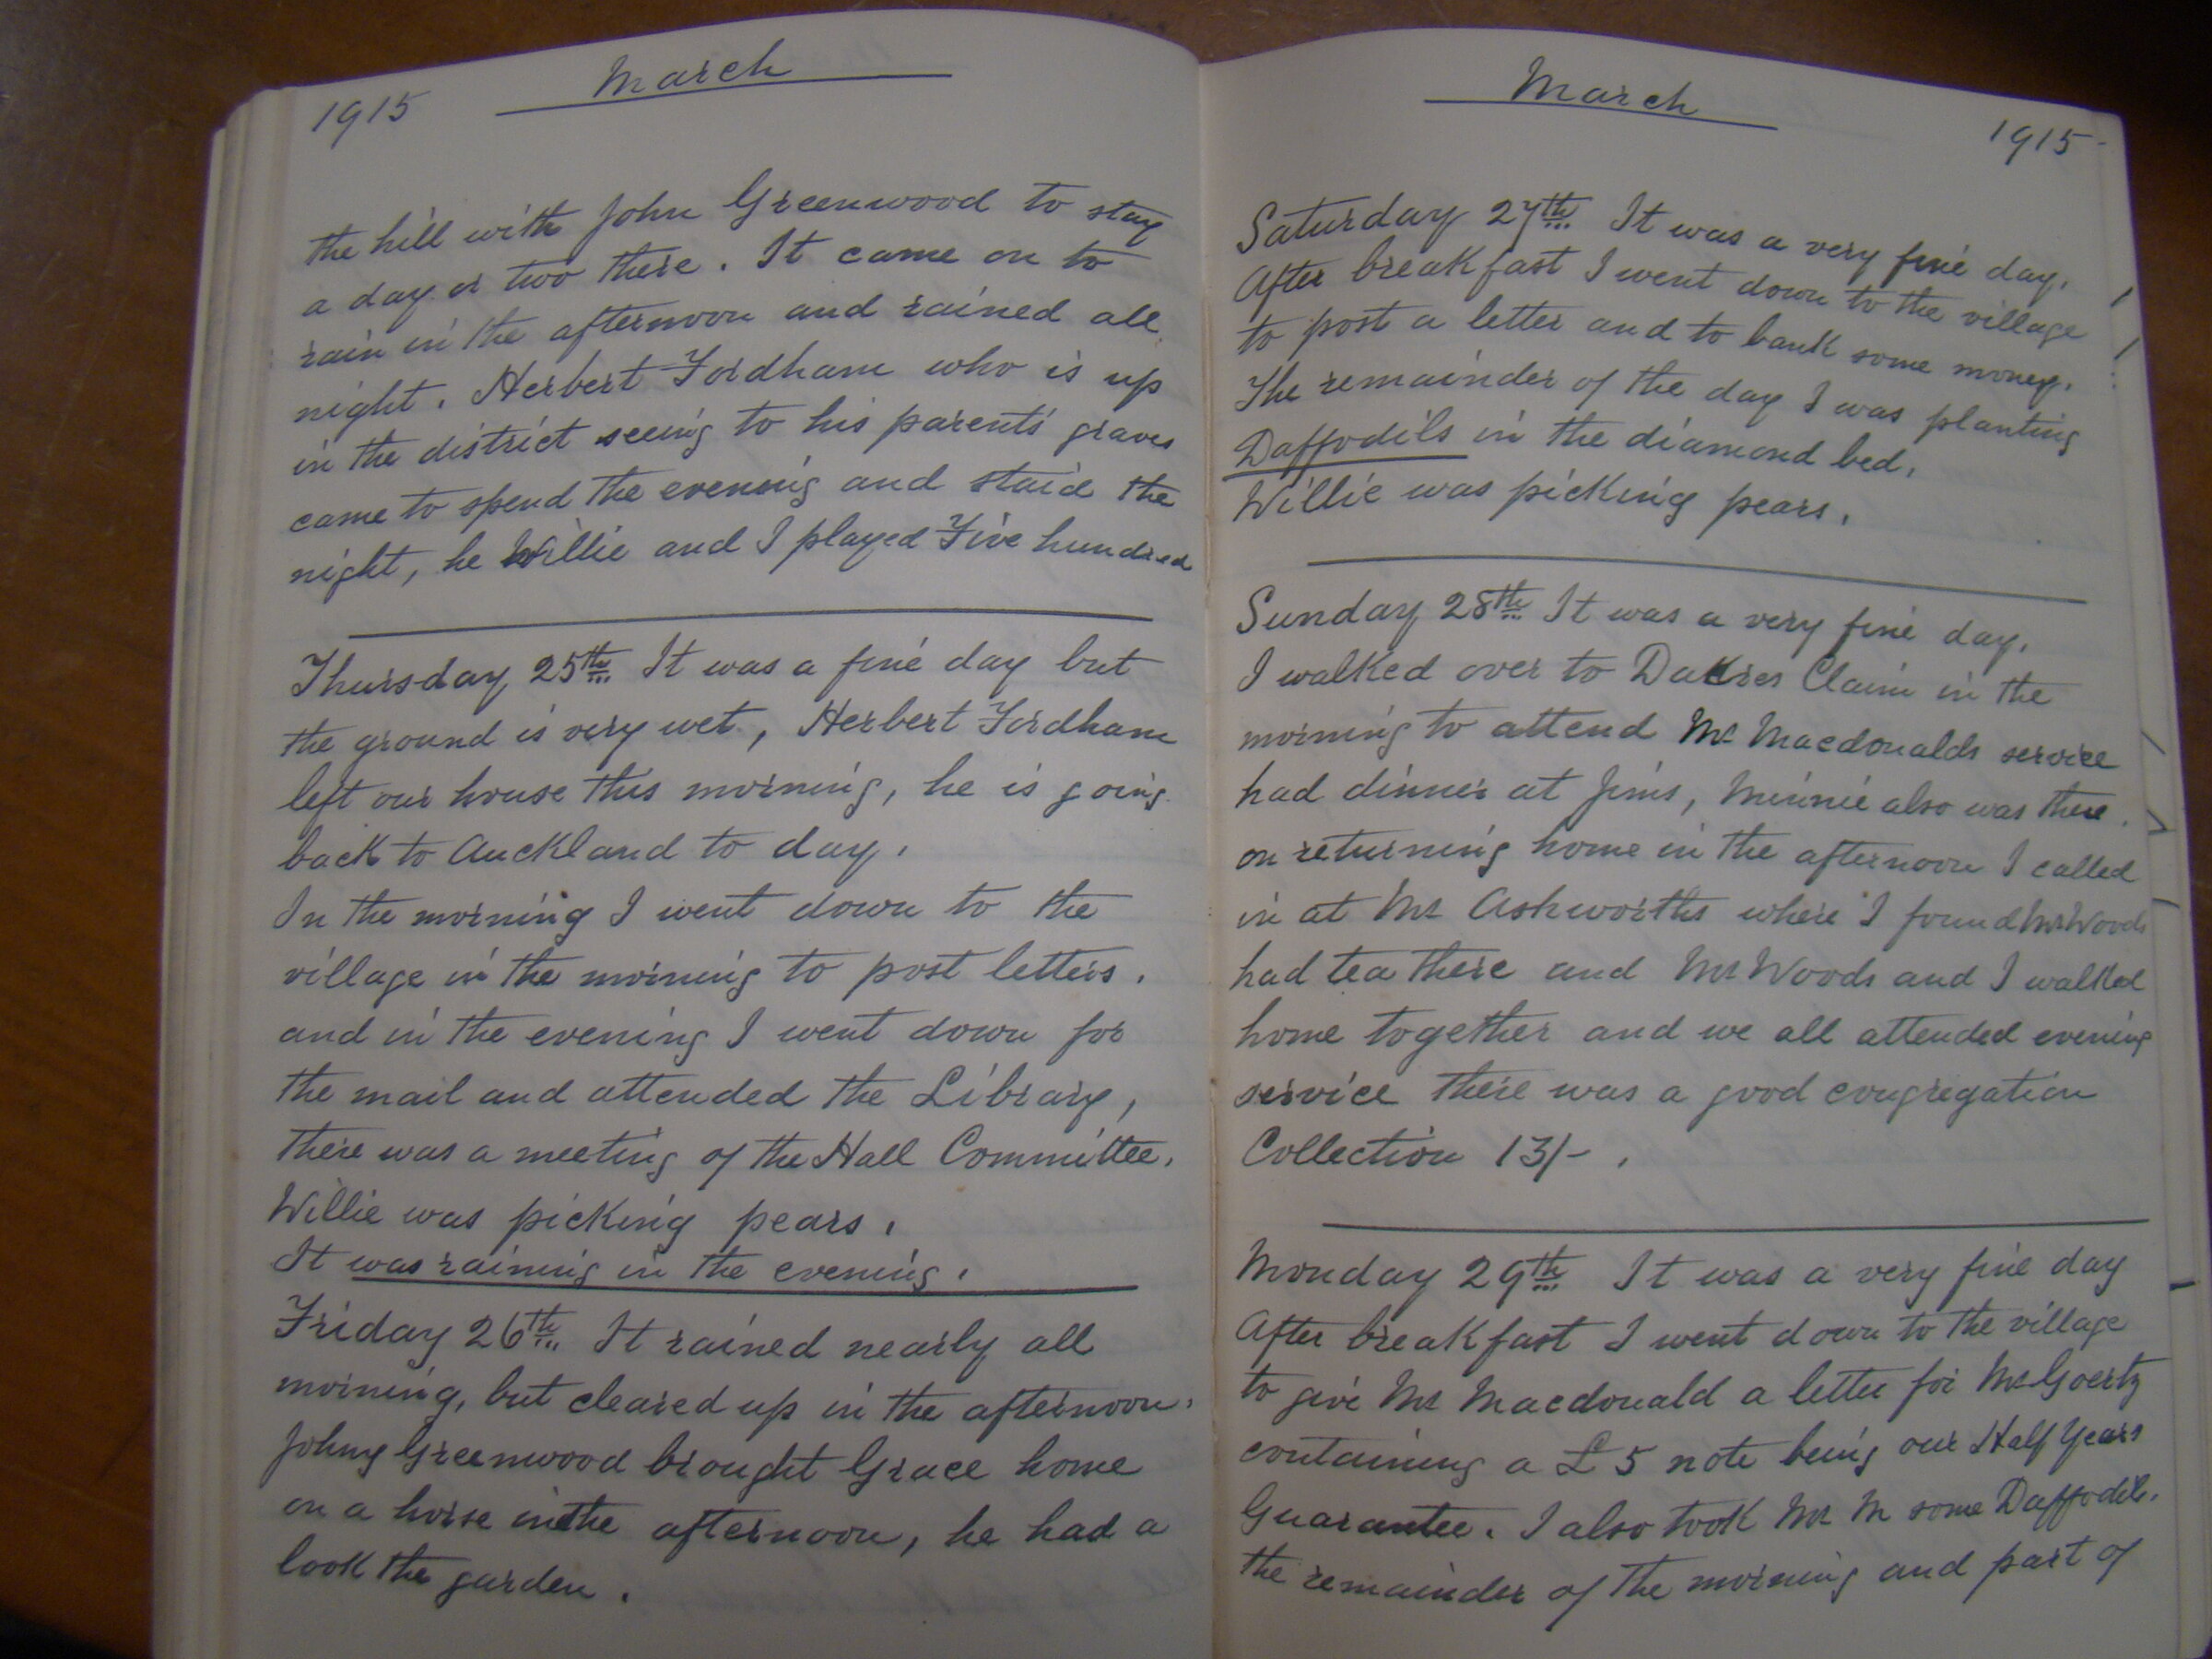 1915
March
the hill with John Greenwood to stay
a day or two there. It came on to
rain in the afternoon and rained all
night. Herbert Fordham who is up
in the district seeing to his parents' graves
came to spend the evening and staid the
night, he Willie and I played Five hundred
Thursday 25th It was a fine day but
the ground is very wet, Herbert Fordham
left our house this morning, he is going
back to Auckland to day.
In the morning I went down to the
village in the morning to post letters.
and in the evening I went down for
the mail and attended the Library,
there was a meeting of the Hall Committee.
Willie was picking pears.
It was raining in the evening.
Friday 26th It rained nearly all
morning, but cleared up in the afternoon.
Johny Greenwood brought Grace home
on a horse in the afternoon, he had a
look the garden.
March
1915
Saturday 27th It was a very fine day.
After breakfast I went down to the village
to post a letter and to bank some money.
The remainder of the day I was planting
Daffodils in the diamond bed.
Willie was picking pears.
Sunday 28th It was a very fine day.
I walked over to Dacres Claim in the
morning to attend Mr Macdonalds service
had dinner at Jims, Minnie also was there.
on returning home in the afternoon I called
in at Mr Ashworths where I found Mr Woods
had tea there and Mr Woods and I walked
home together and we all attended evening
service there was a good congregation
Collection 13/-.
Monday 29th It was a very fine day
After breakfast I went down to the village
to give Mr Macdonald a letter for Mr Goertz
containing a £5 note being our Half Years
Guarantee. I also took Mr M some Daffodils.
the remainder of the morning and part of